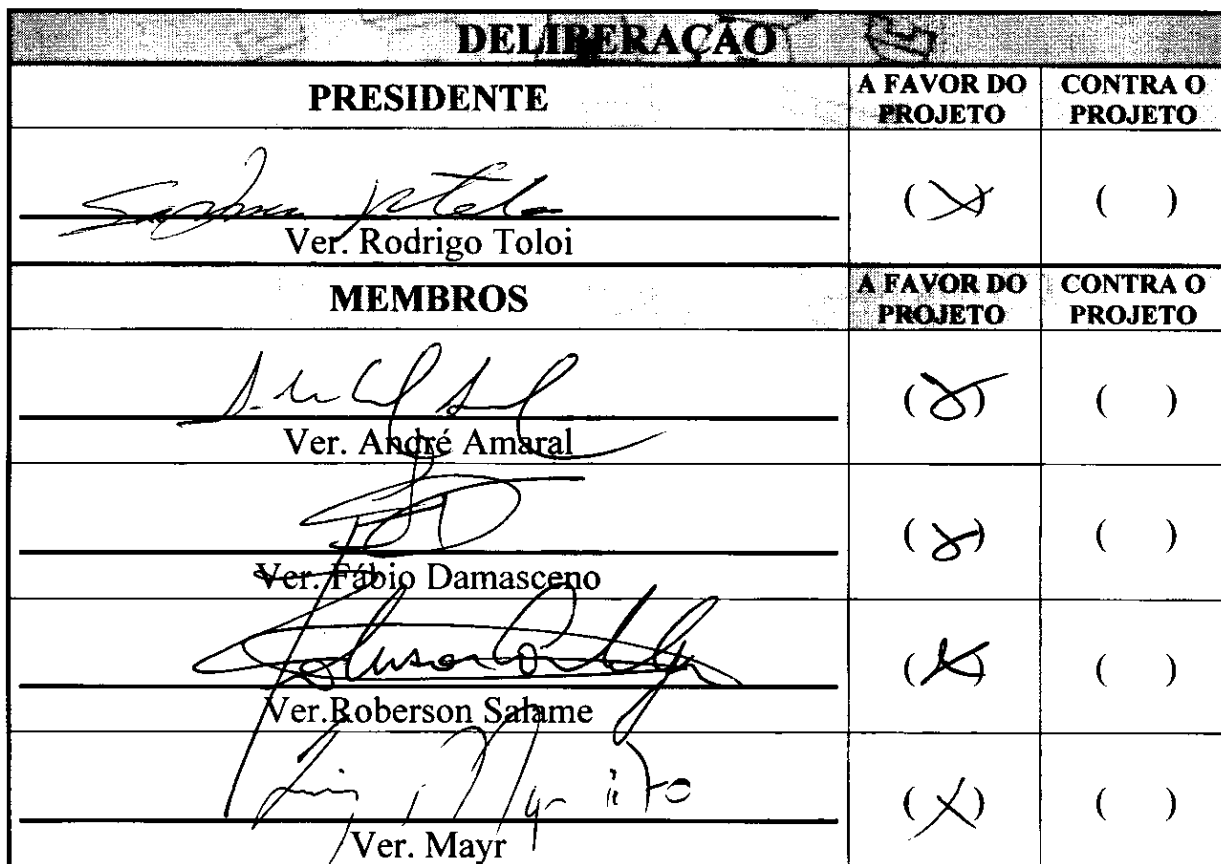 DELIBERAÇÃO
PRESIDENTE A FAVOR DO PROJETO CONTRA O PROJETO
(X) ( )
Ver. Rodrigo Toloi
MEMBROS A FAVOR DO PROJETO CONTRA O PROJETO
(X) ( )
Ver. André Amaral
(X) ( )
Ver. Fábio Damasceno
(X) ( )
Ver.Roberson Salame
(X) ( )
Ver. Mayr